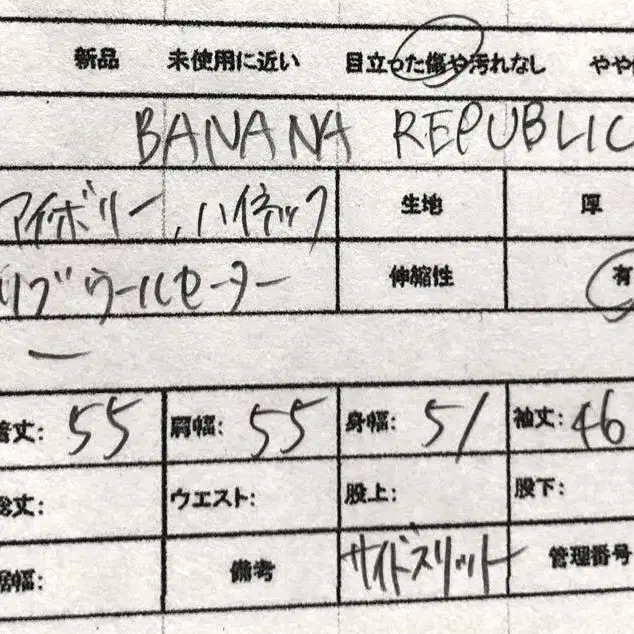 新品 未使用に近い 目立った傷や汚れなし やや
BANANA REPUBLIC
アイボリー、ハイネック 生地 厚
リブウールセーター 伸縮性 有
ー
着丈: 55 肩幅: 55 身幅: 51 袖丈: 46
総丈: ウエスト: 股上: 股下:
裾幅: 備考 サイドスリット 管理番号